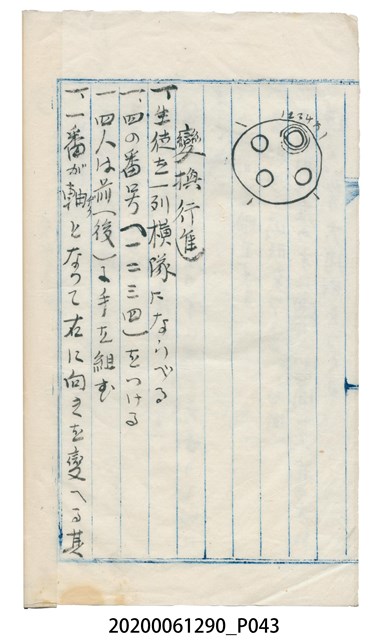 1234
變換行進
一、生徒を一列横隊にならべる
一、四の番号(一二三四)をつける
一、四人は前(後)に手を組む
一、一番が軸となって右に向きを變へる其
20200061290_P043